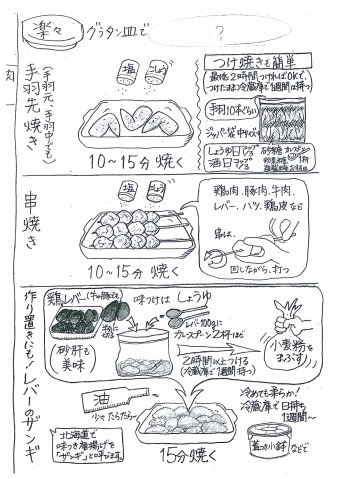 楽々
グラタン皿で
?
肉
手羽先焼き
(手羽元、手羽中でも)
塩
こしょう
10〜15分焼く
つけ焼きも簡単
最低2時間つければOKで、
つけたまま冷蔵庫で1週間は持つ
手羽10本ぐらい
ジッパー袋中サイズ
しょうゆ
酒
砂糖
串焼き
塩
こしょう
10〜15分焼く
鶏肉、豚肉、牛肉、
レバー、ハツ、鶏皮など
串は、
回しながら、打つ
作り置きにも!レバーのザンギ
鶏レバー(牛や豚でも)
半分に切る
(砂肝も美味)
味つけは しょうゆ
レバー100gに
カレースプーン2杯ほど
2時間以上つける
(冷蔵庫で1週間持つ)
小麦粉を
まぶす
油
たらたら〜
北海道で
味つき唐揚げを
「ザンギ」と呼びます。
15分焼く
冷めても柔らか!
冷蔵庫で日持ち
1週間〜
蓋つき小鉢
などで